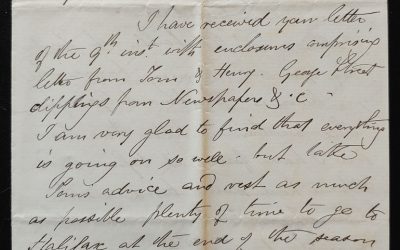 I have received your letter
of the 9th inst. with enclosures comprising
letter from Tom & Henry. George Street
clippings from Newspapers &c
I am very glad to find that everything
is going on so well. but take
Tom's advice and rest as much
as possible plenty of time to go to
Halifax at the end of the season